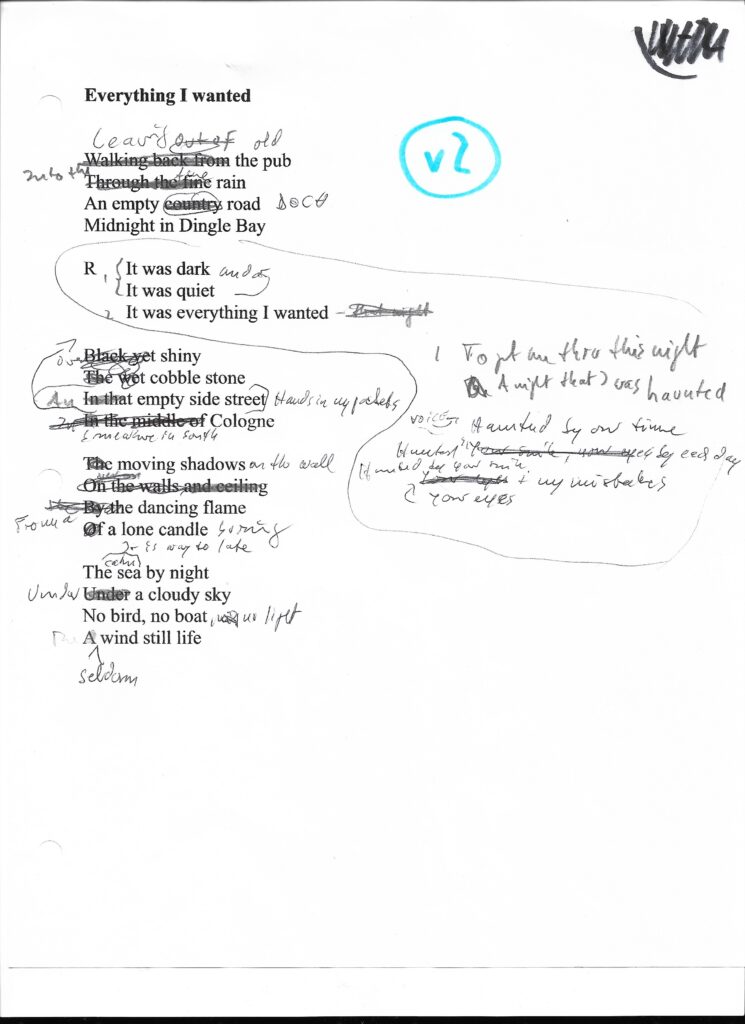 Everything I wanted
v2
Leaving out of old
Walking back from the pub
Into the fine
Through the fine rain
An empty country road
Midnight in Dingle Bay
R 1 It was dark and
It was quiet
2 It was everything I wanted - that night
Black yet shiny
The wet cobble stone
An In that empty side street Hands in my pockets
In the middle of Cologne
Somewhere in south
The moving shadows on the wall
On the walls and ceiling
By the dancing flame
From a Of a lone candle
It is way to late
calm
The sea by night
Under Under a cloudy sky
No bird, no boat, no light
A wind still life
seldom
1 To get me thru this night
A night that I was haunted
Haunted by our time
Haunted by your smile, your eyes by each day
Haunted by your smile
your eyes + my mistakes
2 your eyes